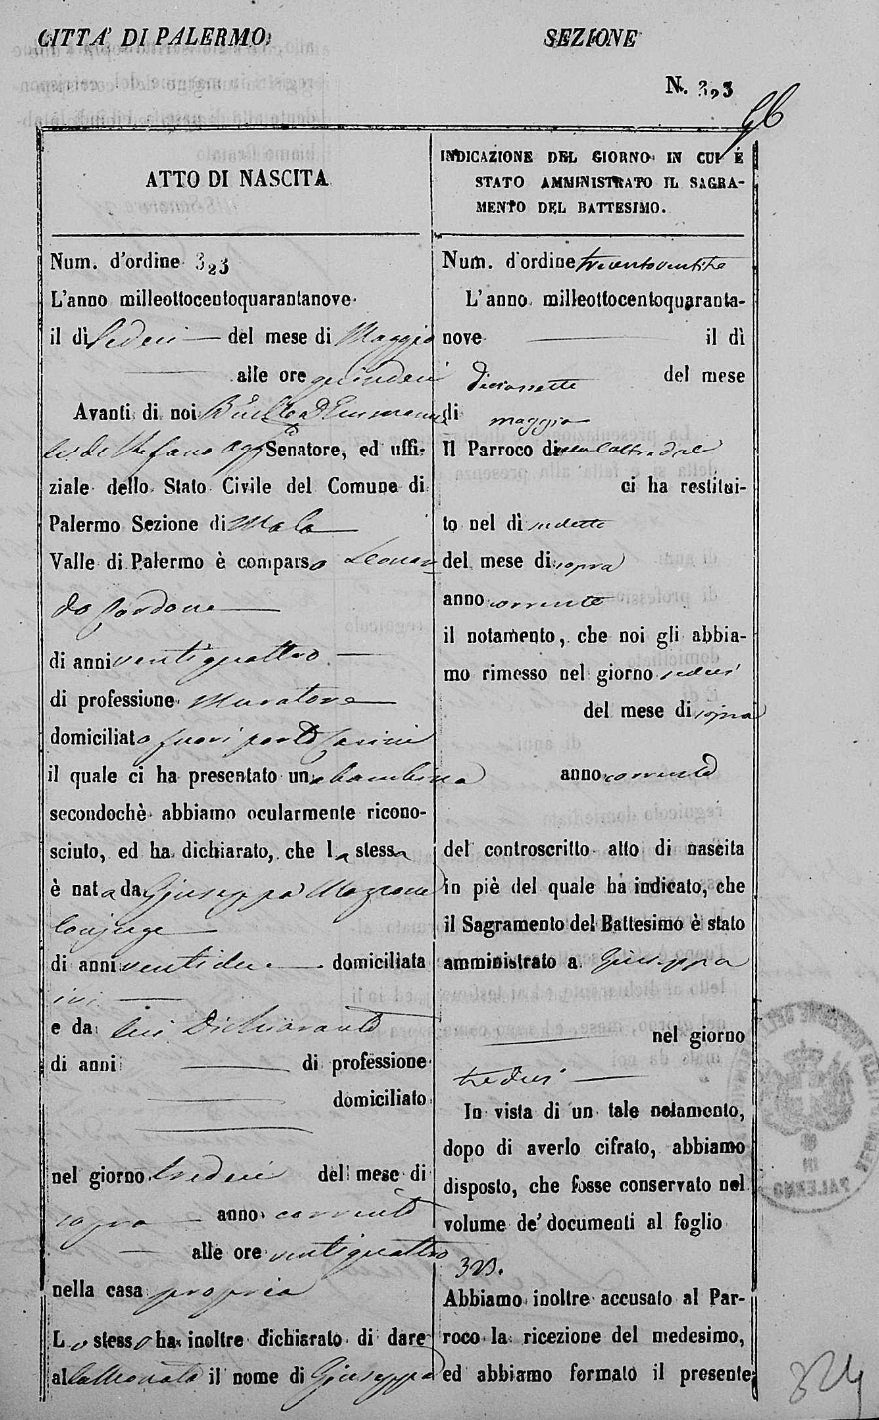 CITTA' DI PALERMO
SEZIONE
N. 323
ATTO DI NASCITA
Num. d'ordine 323
L'anno milleottocentoquarantanove
il dì del mese di Maggio
alle ore quindici
Avanti di noi
Senatore, ed uffi-
ziale dello Stato Civile del Comune di
Palermo Sezione di Molo
Valle di Palermo è comparso Leonar
do
di anni ventiquattro
di professione Muratore
domiciliato fuori porta
il quale ci ha presentato una bambina
secondochè abbiamo ocularmente ricono-
sciuto, ed ha dichiarato, che la stessa
è nata da Giuseppa
Conjuge
di anni ventidue domiciliata
ivi
e da lui Dichiarante
di anni di professione
domiciliato
nel giorno tredeci del mese di
sopra anno corrente
alle ore ventiquattro
nella casa propria
Lo stesso ha inoltre dichiarato di dare
alla Neonata il nome di Giuseppa
INDICAZIONE DEL GIORNO IN CUI È
STATO AMMINISTRATO IL SAGRA-
MENTO DEL BATTESIMO.
Num. d'ordine trecentoventitre
L'anno milleottocentoquaranta-
nove il dì
diciassette del mese
di maggio
Il Parroco di
ci ha restitui-
to nel dì sudetto
del mese di sopra
anno corrente
il notamento, che noi gli abbia-
mo rimesso nel giorno sedici
del mese di sopra
anno corrente
del controscritto atto di nascita
in piè del quale ha indicato, che
il Sagramento del Battesimo è stato
amministrato a Giuseppa
nel giorno
tredici
In vista di un tale notamento,
dopo di averlo cifrato, abbiamo
disposto, che fosse conservato nel
volume de' documenti al foglio
323.
Abbiamo inoltre accusato al Par-
roco la ricezione del medesimo,
ed abbiamo formato il presente
324